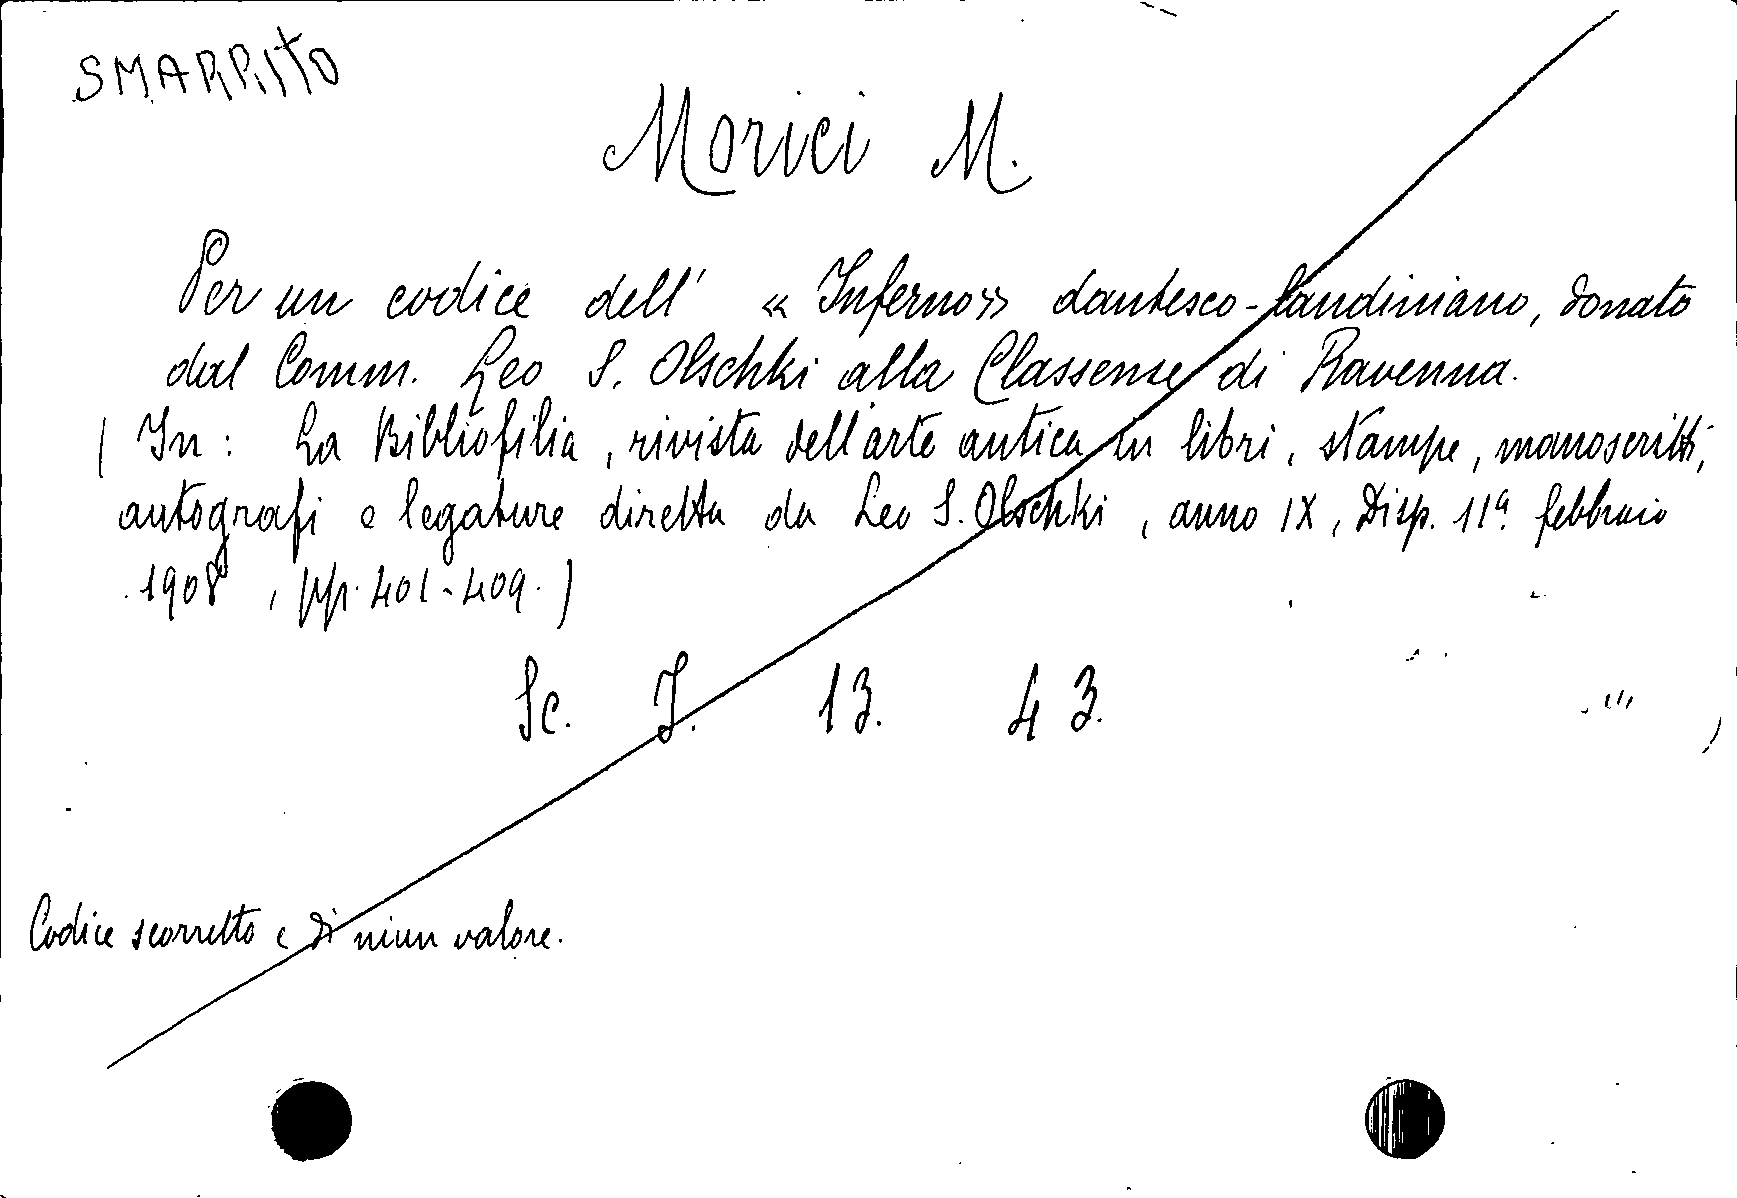 SMARRITO
Morici M.
Per un codice dell' « Inferno » dantesco-landiniano, donato
dal Comm. Leo S. Olschki alla Classense di Ravenna.
( In: La Bibliofilia, rivista dell'arte antica in libri, stampe, manoscritti,
autografi e legature diretta da Leo S. Olschki, anno IX, Disp. 11ª febbraio
1908, pp. 401-409.)
Sc. I. 13. 43.
Codice scorretto e di niun valore.